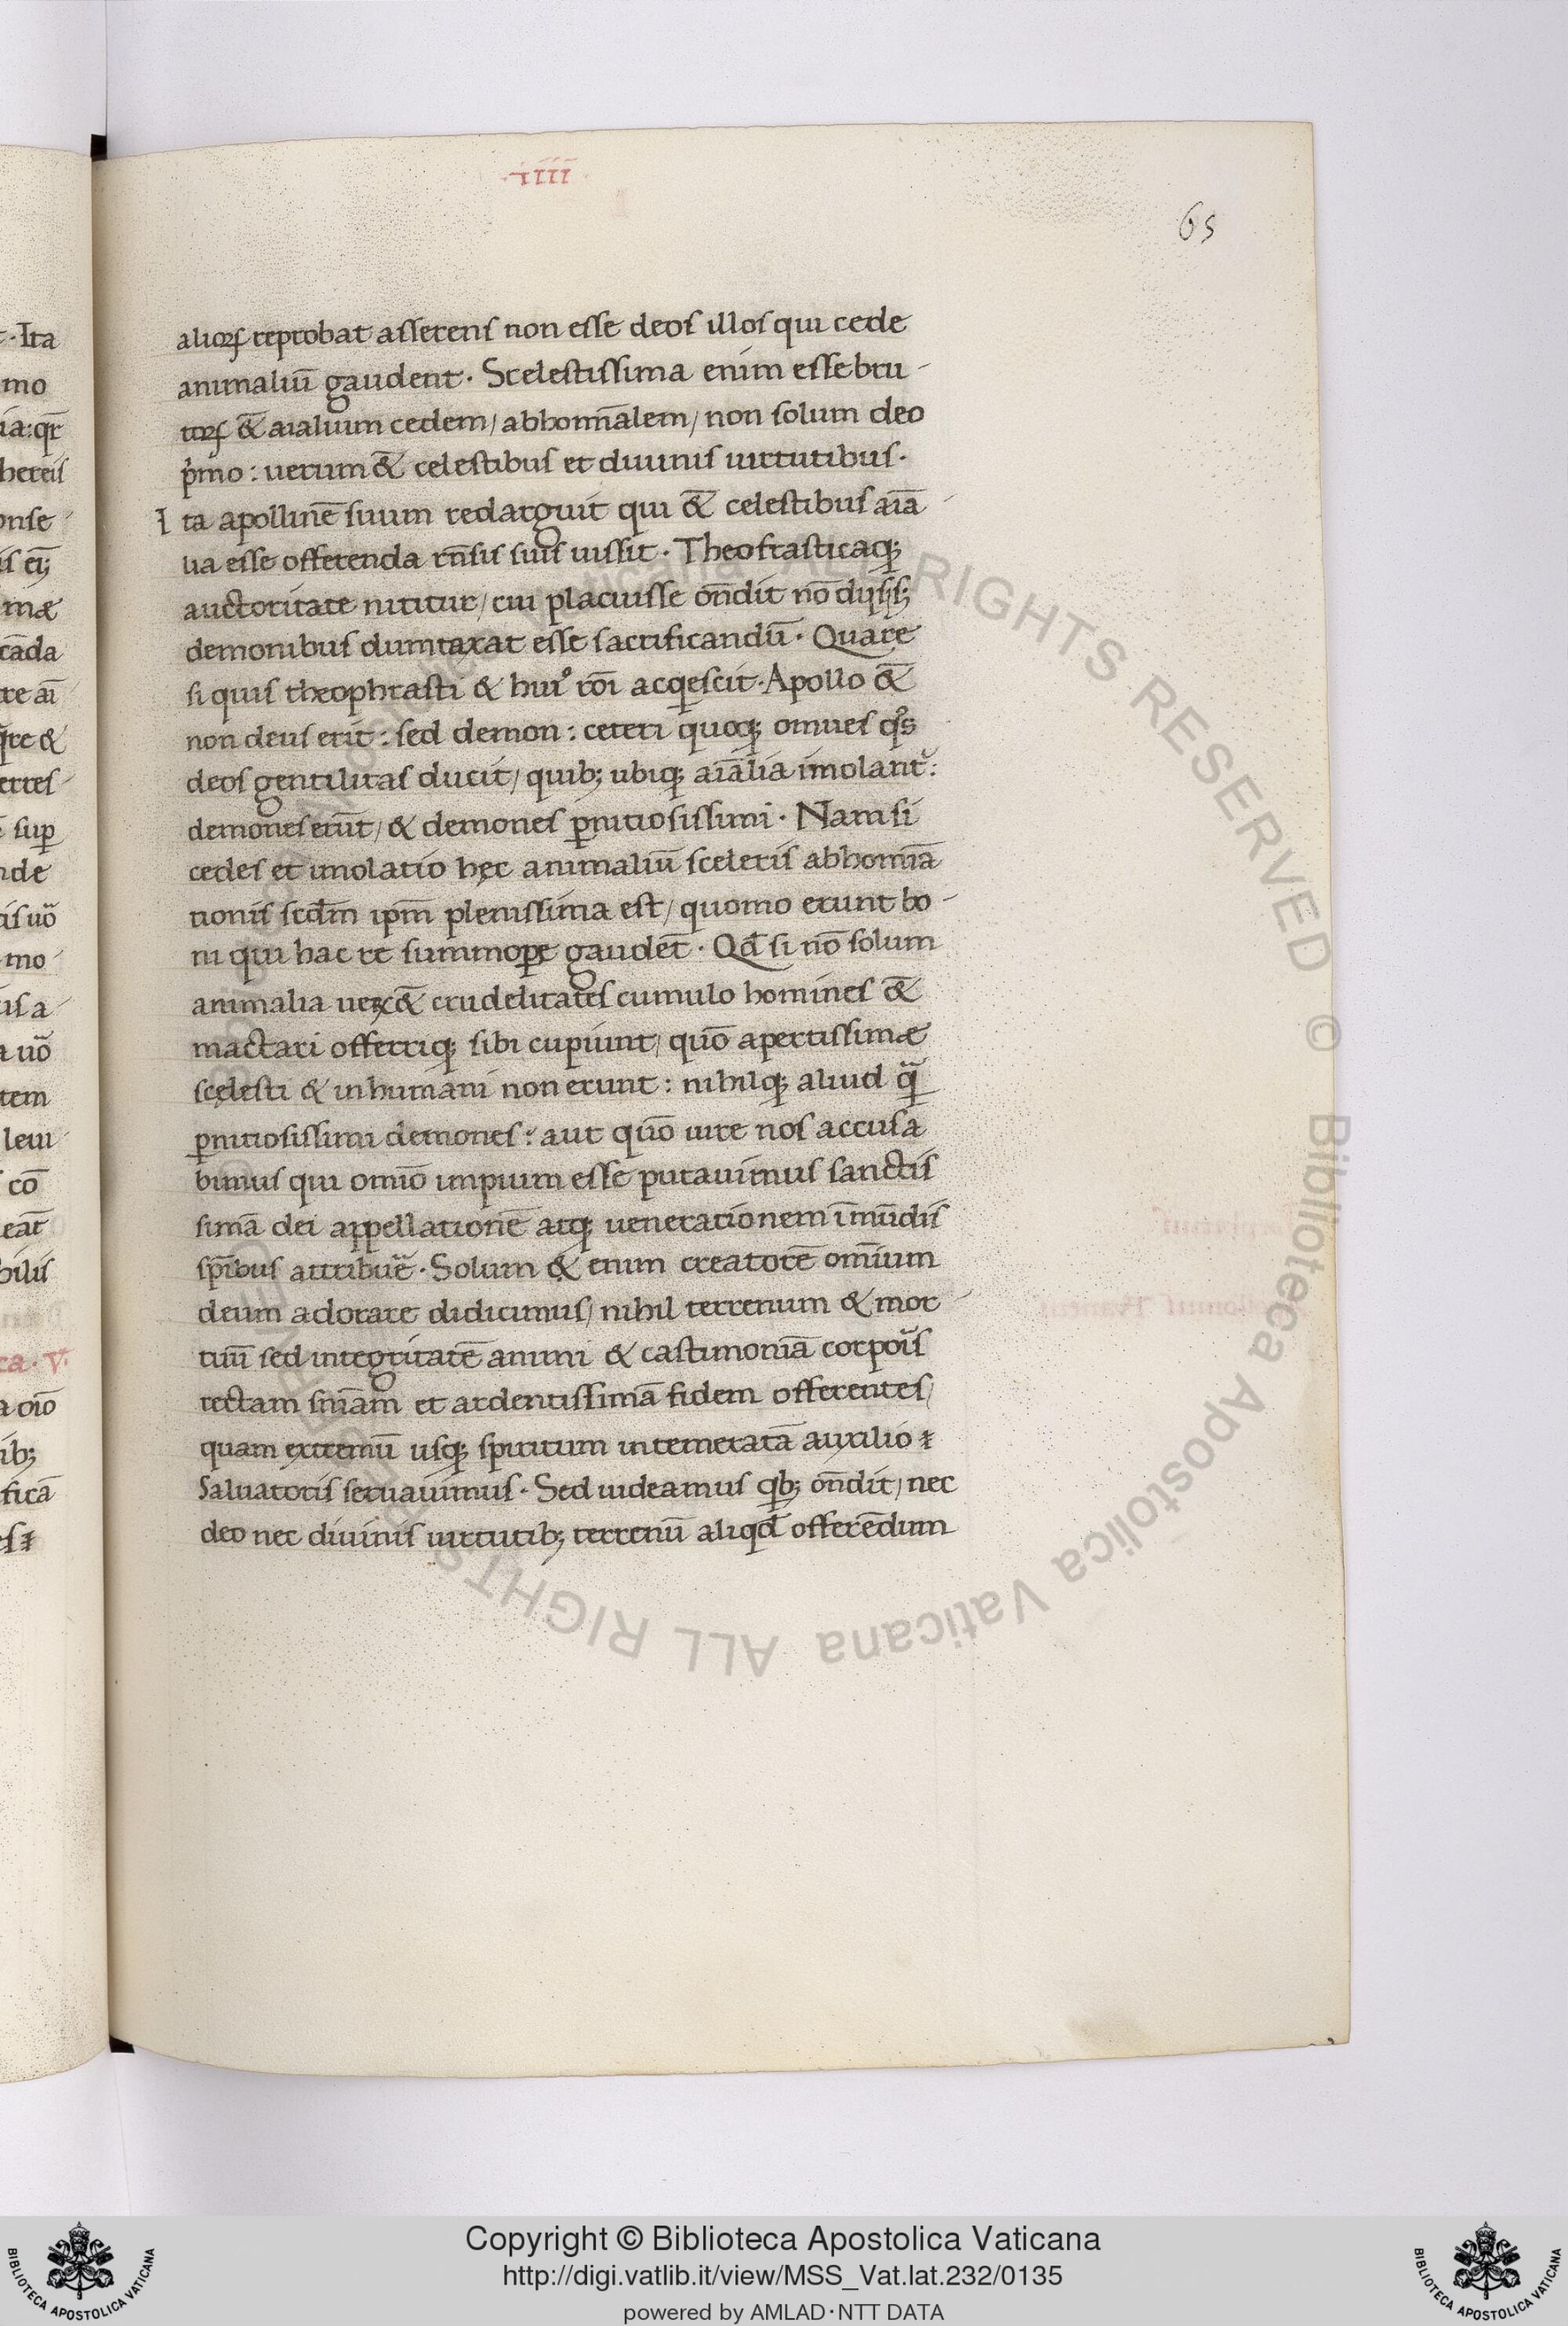 ·iiii·
65
alioꝝ reprobat asserens non esse deos illos qui cede
animaliū gaudent · Scelestissima enim esse bru-
toꝝ &̄ aialuum cedem / abhomn̄alem / non solum deo
pͥmo : uerum &̄ celestibus et diuinis uirtutibus ·
Ita apollinē suum redarguit qui &̄ celestibus aīa-
lia esse offerenda rn̄sis suis iussit · Theofrasticaqꝫ
auctoritate nititur / cui placuisse on̄dit nō diis sꝫ
demonibus dumtaxat esse sacrificandū · Quare
si quis theophrasti & huiꝰ rōi acqͥescit · Apollo &̄
non deus erit : sed demon : ceteri quoqꝫ omnes qͦs
deos gentilitas ducit / quibꝫ ubiqꝫ aīalia īmolant᷑ :
demones erūt / & demones ꝑnitiosissimi · Nam si
cedes et imolatio hęc animaliū sceleris abhomīa
tionis scd̄m ipm̄ plenissima est / quomo erunt bo-
ni qui hac re summoꝑe gaudēt · Qd̄ si nō solum
animalia ueꝝ &̄ crudelitates cumulo homines &̄
mactari offerriqꝫ sibi cupiunt / quō apertissimæ
scelesti & inhumani non erunt : nihilqꝫ aliud qᷓ
ꝑnitiosissimi demones : aut quō iure nos accusa
bimus qui omīo impium esse putauimus sanctis
simā dei appellationē atqꝫ uenerationem īmūdis
sp̄ibus attribuē᷑ · Solum & enim creatorē omīum
deum adorare didicimus / nihil terrenum & mor-
tuū sed integritatē animi & castimoniā corpor᷑is
rectam sn̄iam et ardentissimā fidem offerentes /
quam extremū usqꝫ spiritum intemeratā auxilio
Saluatoris seruauimus · Sed uideamus qͥbꝫ on̄dit / nec
deo nec diuinis uirtutibꝫ terrenū aliqd̄ offerēdum
Copyright © Biblioteca Apostolica Vaticana
http://digi.vatlib.it/view/MSS_Vat.lat.232/0135
powered by AMLAD·NTT DATA
BIBLIOTECA APOSTOLICA VATICANA
BIBLIOTECA APOSTOLICA VATICANA